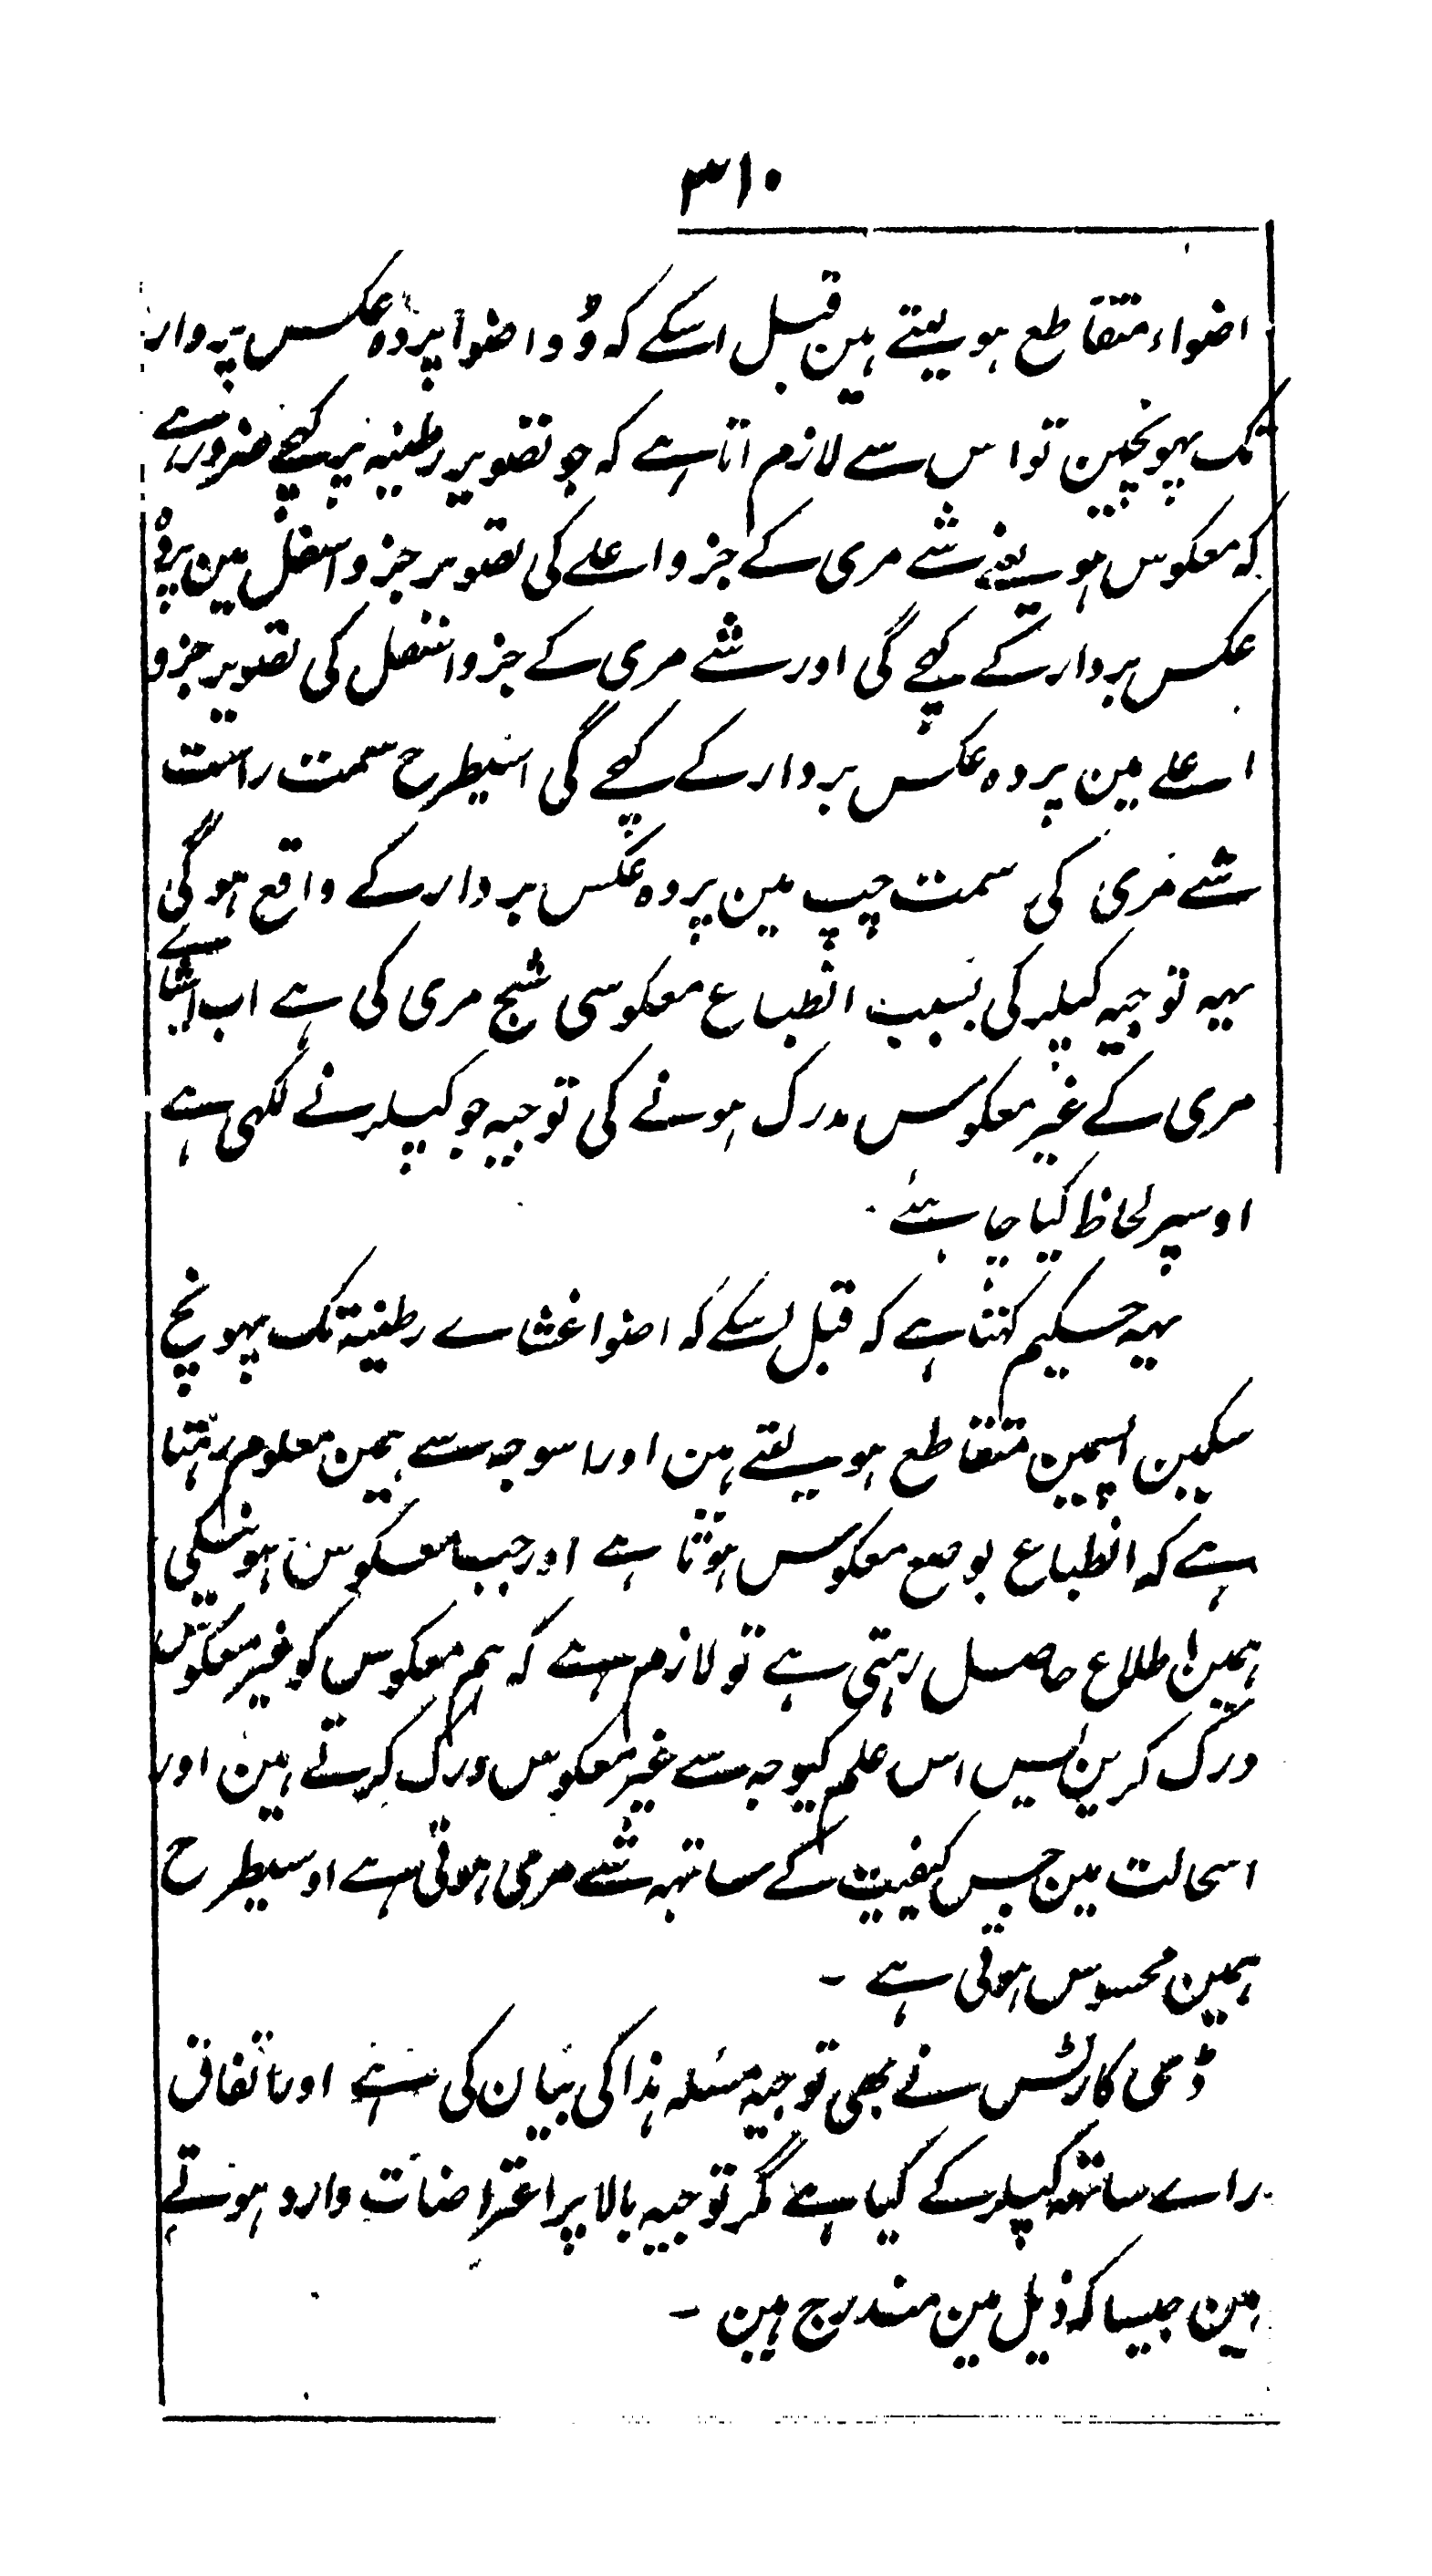 ۳۱۰
اضواء متقاطع ہو لیتے ہین قبل اسکے کہ وُو اضوا پردہ عکس بردار
تک پہونچین تو اس سے لازم اتا ہے کہ جو تصویر رطنیہ پر کھچے ضرور ہے
کہ معکوس ہو یعنے شے مری کے جزو اعلے کی تصویر جزو اسفل مین پردہ
عکس بردار کے کھچے گی اور شے مری کے جزو اسفل کی تصویر جزو
اعلے مین پردہ عکس بردار کے کھچے گی اسیطرح سمت راست
شے مری کی سمت چپ مین پردہ عکس بردار کے واقع ہو گی
یہہ توجیہ کیپلر کی بسبت انطباع معکوسی شبح مری کی ہے اب اشیاے
مری کے غیر معکوس مدرک ہونے کی توجیہ جو کیپلر نے لکھی ہے
اوسپر لحاظ کیا چاہئے
یہہ حکیم کہتا ہے کہ قبل اسکے کہ اضوا غشاے رطنیۃ تک پہونچ
سکین اسمین متقاطع ہو لیتے ہین اور اسوجہ سے ہمین معلوم رہتا
ہے کہ انطباع بوضع معکوس ہوتا ہے اور جب معکوس ہونیکی
ہمین اطلاع حاصل رہتی ہے تو لازم ہے کہ ہم معکوس کو غیر معکوس
درک کرین پس اس علم کیوجہ سے غیر معکوس درک کرتے ہین اور
اسحالت مین جس کیفیت کے ساتہہ شے مرمی ہوتی ہے اوسیطرح
ہمین محسوس ہوتی ہے ۔
ڈسی کارٹس نے بھی توجیہ مسئلہ ہذا کی بیان کی ہے اور اتفاق
راے ساتھہ کیپلر کے کیا ہے مگر توجیہ بالا پر اعتراضات وارد ہوتے
ہین جیسا کہ ذیل مین مندرج ہین ۔